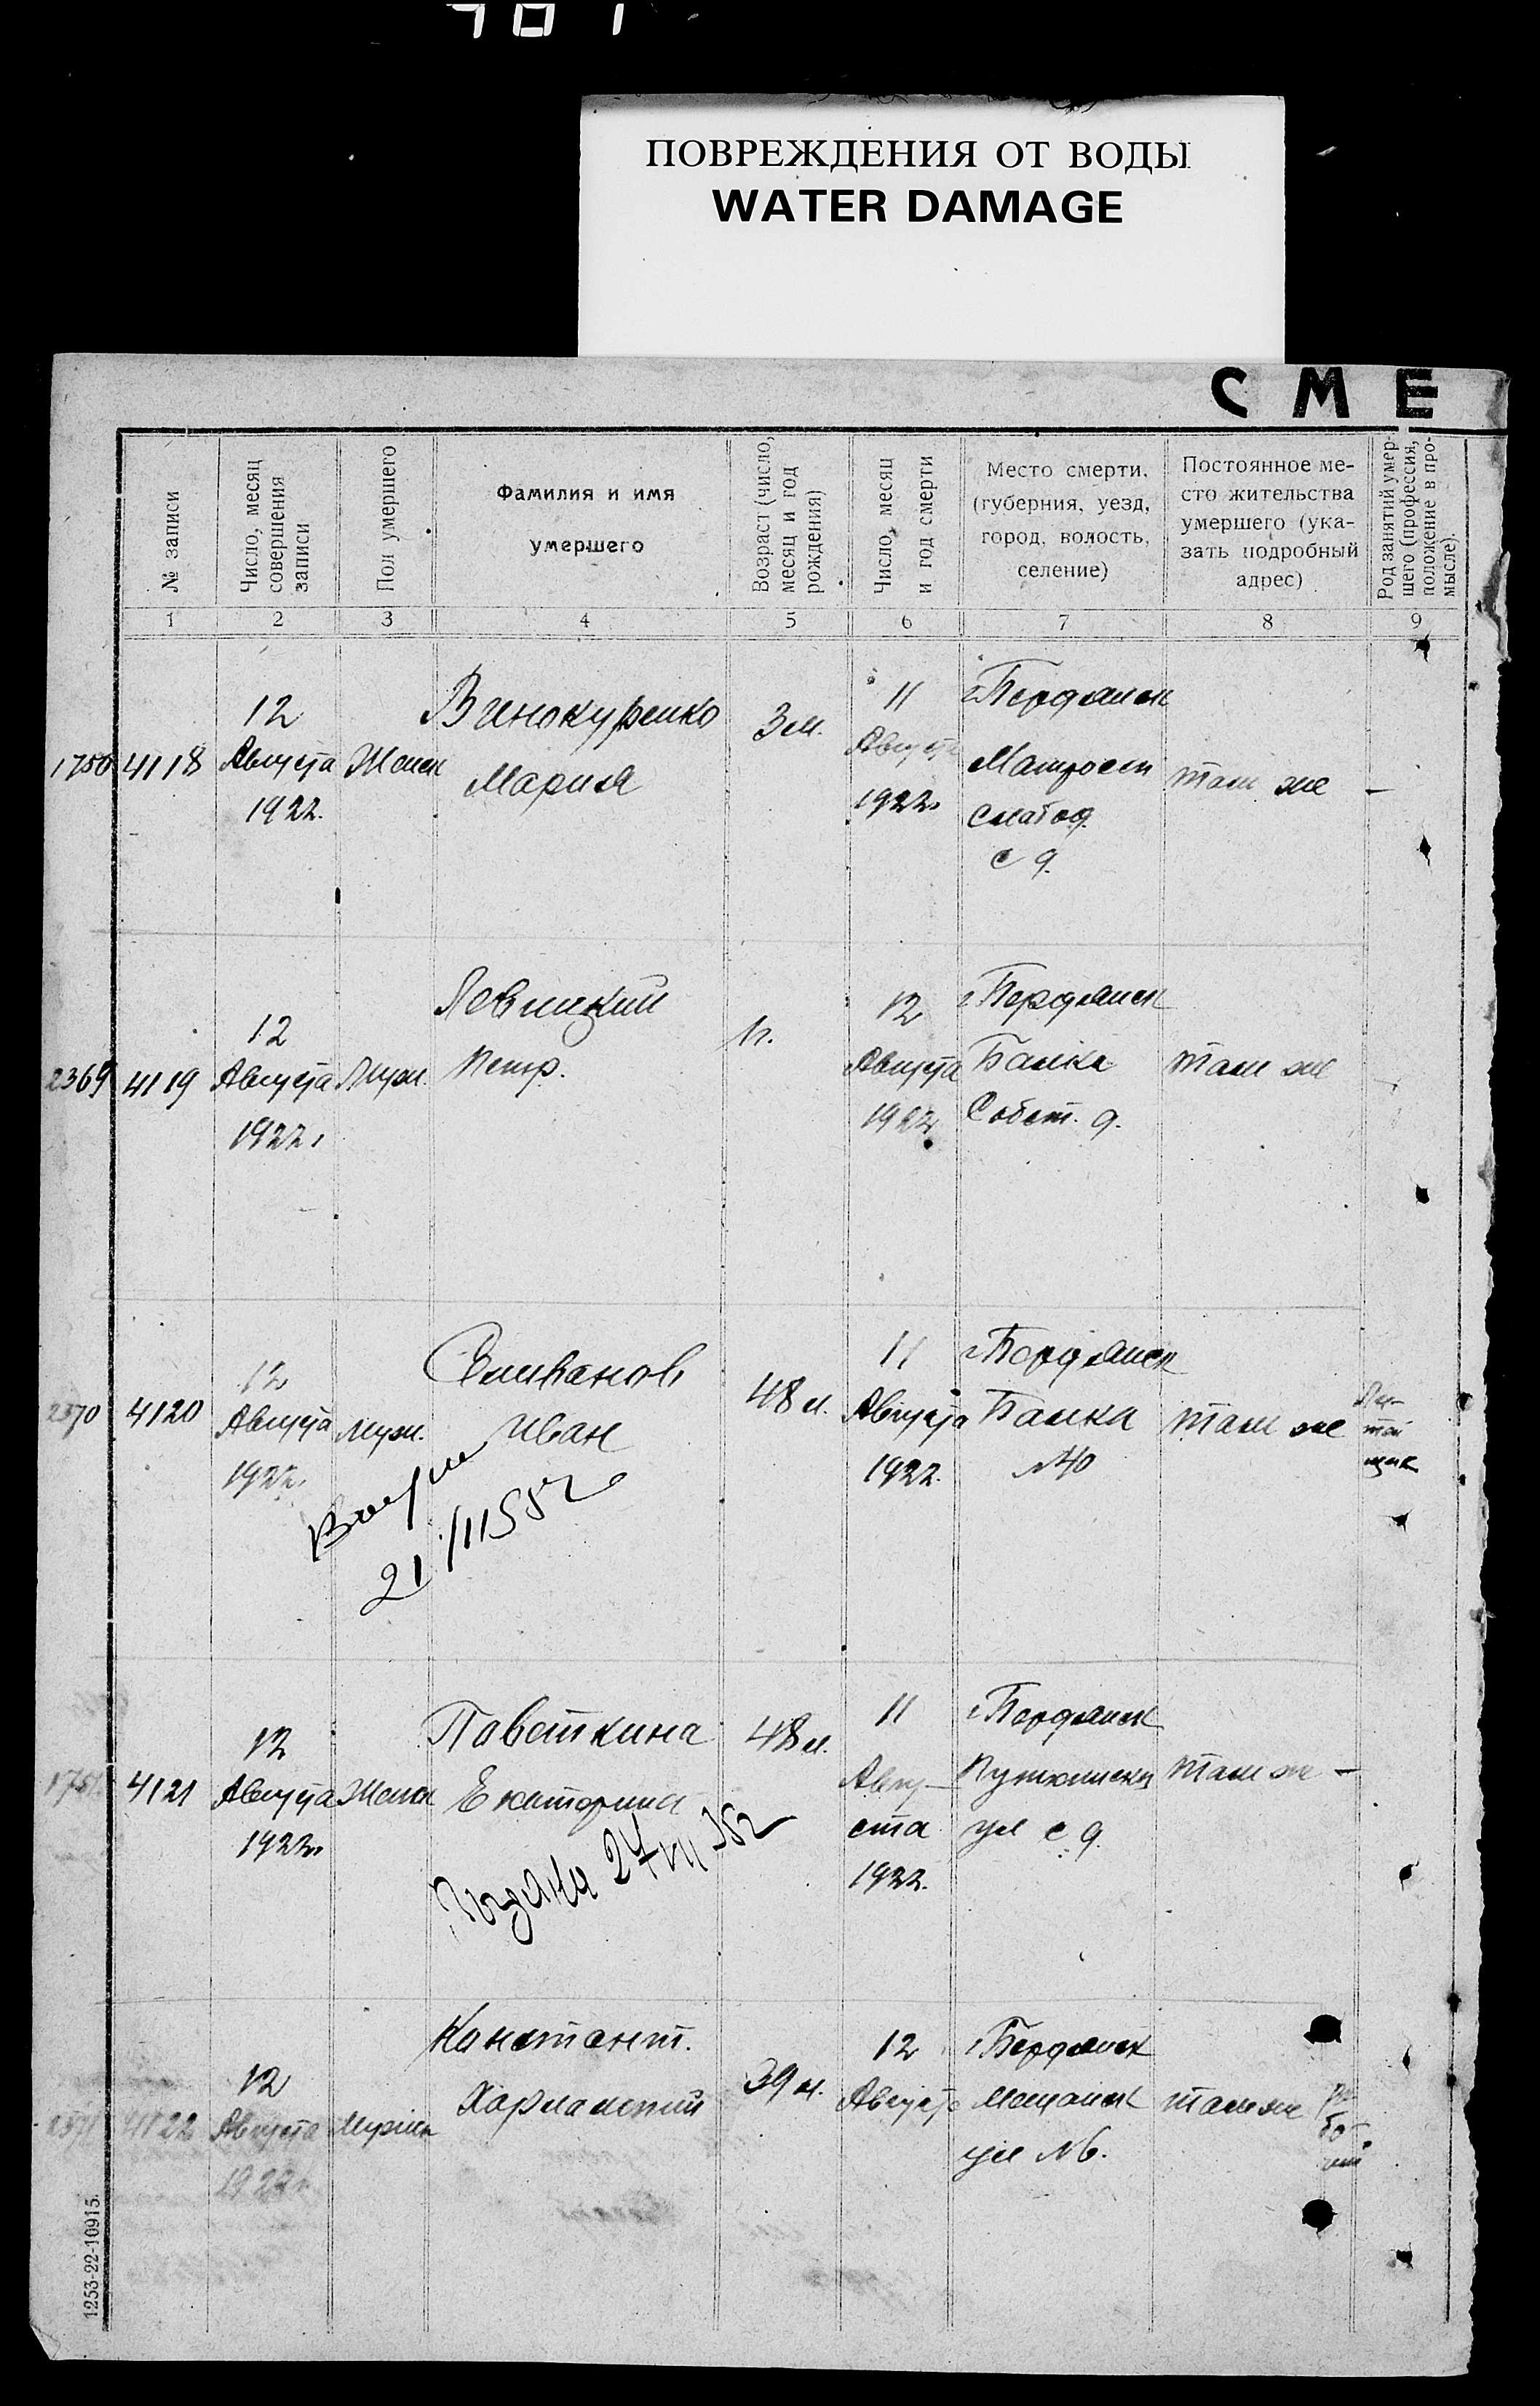 ПОВРЕЖДЕНИЯ ОТ ВОДЫ
WATER DAMAGE
С М Е
№ записи
Число, месяц
совершения
записи
Пол умершего
Фамилия и имя
умершего
Возраст (число,
месяц и год
рождения)
Число, месяц
и год смерти
Место смерти,
(губерния, уезд,
город, волость,
селение)
Постоянное ме-
сто жительства
умершего (ука-
зать подробный
адрес)
Род занятий умер-
шего (профессия,
положение в про-
мысле).
1 2 3 4 5 6 7 8 9
1750
4118
12
Августа
1922.
Женск
Винокуренко
Мария
3 м.
11
Августа
1922.
г Бердянск
Матросск
слабод.
с д.
там же
—
2369
4119
12
Августа
1922.
Муж.
Левицкий
Петр.
1 г.
12
Августа
1922
г Бердянск
Балка
Собст. д.
там же
2370
4120
12
Августа
1922.
Муж.
Селиванов
Иван
21/III 55 г
48 л.
11
Августа
1922.
г Бердянск
Балка
№40
там же
Ли-
тей
щик
1751
4121
12
Августа
1922.
Женск
Поветкина
Екатерина
48 л.
11
Авгу-
ста
1922.
г Бердянск
Пушкинск
ул с д.
там же
—
2371
4122
12
Августа
1922 г.
Мужск
Констант.
Харлампий
39 л.
12
Августа
г Бердянск
Мещанск
ул №6.
там же
ра-
бо-
чий
1253-22-10915.